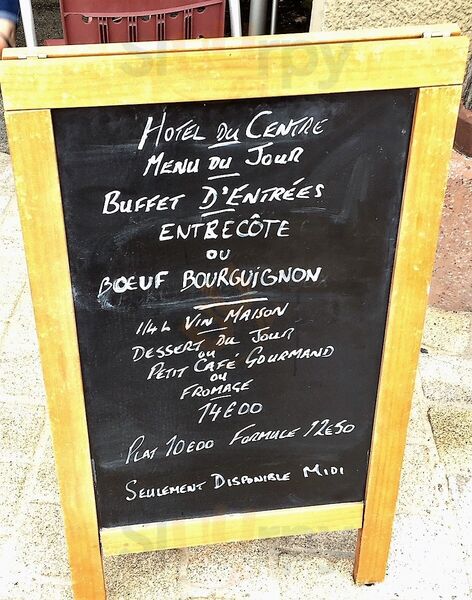 Hotel du Centre
Menu du Jour
Buffet D'Entrées
Entrecôte
ou
Bœuf Bourguignon
1/4L Vin Maison
Dessert du Jour
ou
Petit Café Gourmand
ou
Fromage
14€00
Plat 10€00 Formule 12€50
Seulement Disponible Midi